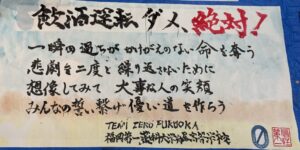 飲酒運転ダメ、絶対!
一瞬の過ちが かけがえのない命を奪う
悲劇を二度と繰り返させないために
想像してみて 大事な人の笑顔
みんなの誓い繋げ優しい道を作ろう
TEAM ZERO FUKUOKA
福岡第一薬科大学附属高等学校
0